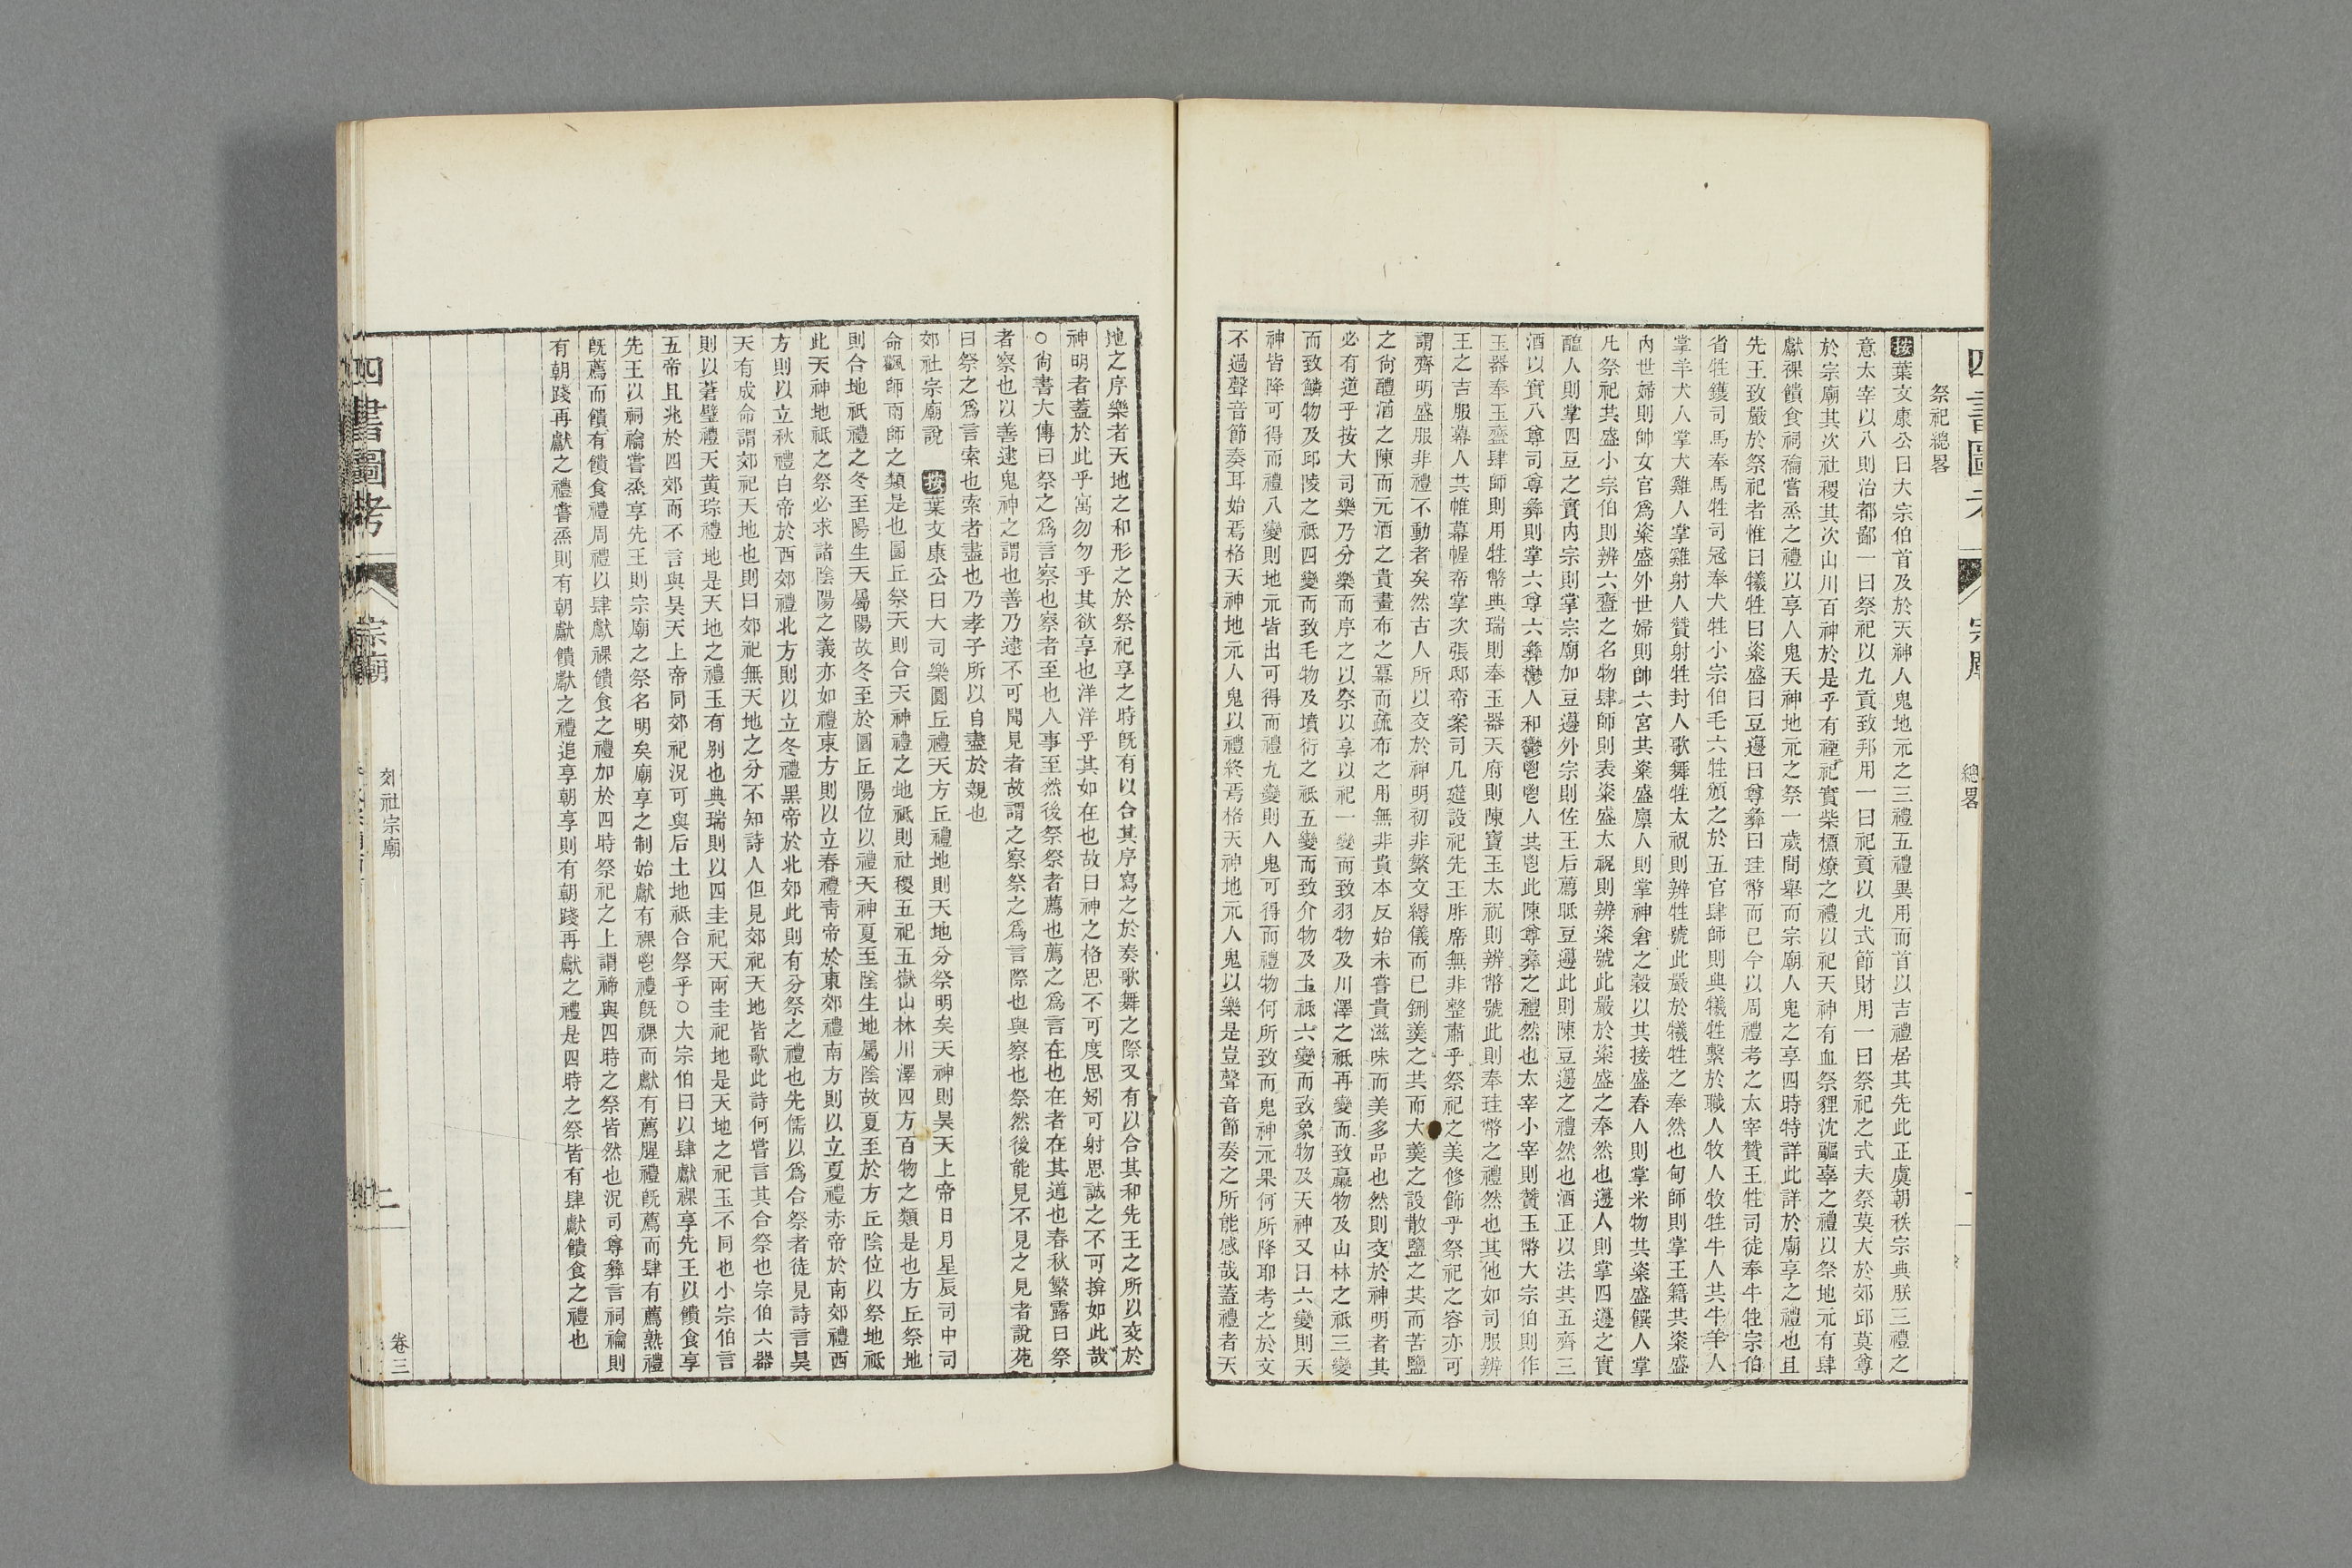 祭祀總畧
按葉文康公曰大宗伯首及於天神人鬼地元之三禮五禮異用而首以吉禮居其先此正虞朝秩宗典朕三禮之
意太宰以八則治都鄙一曰祭祀以九貢致邦用一曰祀貢以九式節財用一曰祭祀之式夫祭莫大於郊邱莫尊
於宗廟其次社稷其次山川百神於是乎有禋祀實柴槱燎之禮以祀天神有血祭貍沈疈辜之禮以祭地元有肆
獻祼饋食祠禴嘗烝之禮以享人鬼天神地元之祭一歲間舉而宗廟人鬼之享四時特詳此詳於廟享之禮也且
先王致嚴於祭祀者惟曰犧牲曰粢盛曰豆籩曰尊彝曰珪幣而已今以周禮考之太宰贊王牲司徒奉牛牲宗伯
省牲鑊司馬奉馬牲司冦奉犬牲小宗伯毛六牲頒之於五官肆師則典犧牲繫於職人牧人牧牲牛人共牛羊人
掌羊犬人掌犬雞人掌雞射人贊射牲封人歌舞牲太祝則辨牲號此嚴於犧牲之奉然也甸師則掌王籍共粢盛
內世婦則帥女官爲粢盛外世婦則帥六宮共粢盛廩人則掌神倉之穀以共接盛舂人則掌米物共粢盛饎人掌
凡祭祀共盛小宗伯則辨六齍之名物肆師則表粢盛太祝則辨粢號此嚴於粢盛之奉然也籩人則掌四籩之實
醢人則掌四豆之實內宗則掌宗廟加豆籩外宗則佐王后薦眡豆籩此則陳豆籩之禮然也酒正以法共五齊三
酒以實八尊司尊彝則掌六尊六彝鬱人和鬱鬯鬯人共鬯此陳尊彝之禮然也太宰小宰則贊玉幣大宗伯則作
玉器奉玉齍肆師則用牲幣典瑞則奉玉器天府則陳寶玉太祝則辨幣號此則奉珪幣之禮然也其他如司服辨
王之吉服幕人共帷幕幄帟掌次張邸帟案司几筵設祀先王胙席無非整肅乎祭祀之美修飾乎祭祀之容亦可
謂齊明盛服非禮不動者矣然古人所以交於神明初非繁文縟儀而已鉶羹之共而大羹之設散鹽之共而苦鹽
之尙醴酒之陳而元酒之貴畫布之冪而疏布之用無非貴本反始未嘗貴滋味而美多品也然則交於神明者其
必有道乎按大司樂乃分樂而序之以祭以享以祀一變而致羽物及川澤之祗再變而致臝物及山林之祗三變
而致鱗物及邱陵之祗四變而致毛物及墳衍之祗五變而致介物及土祗六變而致象物及天神又曰六變則天
神皆降可得而禮八變則地元皆出可得而禮九變則人鬼可得而禮物何所致而鬼神元果何所降耶考之於文
不過聲音節奏耳始焉格天神地元人鬼以禮終焉格天神地元人鬼以樂是豈聲音節奏之所能感哉蓋禮者天
四書圖考 宗廟 總畧
地之序樂者天地之和形之於祭祀享之時旣有以合其序寫之於奏歌舞之際又有以合其和先王之所以交於
神明者蓋於此乎寓勿勿乎其欲享也洋洋乎其如在也故曰神之格思不可度思矧可射思誠之不可揜如此哉
○尙書大傳曰祭之爲言察也察者至也人事至然後祭祭者薦也薦之爲言在也在者在其道也春秋繁露曰祭
者察也以善逮鬼神之謂也善乃逮不可聞見者故謂之察祭之爲言際也與察也祭然後能見不見之見者說苑
曰祭之爲言索也索者盡也乃孝子所以自盡於親也
郊社宗廟說 按葉文康公曰大司樂圜丘禮天方丘禮地則天地分祭明矣天神則昊天上帝日月星辰司中司
命飌師雨師之類是也圜丘祭天則合天神禮之地祗則社稷五祀五嶽山林川澤四方百物之類是也方丘祭地
則合地祇禮之冬至陽生天屬陽故冬至於圜丘陽位以禮天神夏至陰生地屬陰故夏至於方丘陰位以祭地祗
此天神地祗之祭必求諸陰陽之義亦如禮東方則以立春禮靑帝於東郊禮南方則以立夏禮赤帝於南郊禮西
方則以立秋禮白帝於西郊禮北方則以立冬禮黑帝於北郊此則有分祭之禮也先儒以爲合祭者徒見詩言昊
天有成命謂郊祀天地也則曰郊祀無天地之分不知詩人但見郊祀天地皆歌此詩何嘗言其合祭也宗伯六器
則以蒼璧禮天黃琮禮地是天地之禮玉有别也典瑞則以四圭祀天兩圭祀地是天地之祀玉不同也小宗伯言
五帝且兆於四郊而不言與昊天上帝同郊祀況可與后土地祗合祭乎○大宗伯曰以肆獻祼享先王以饋食享
先王以祠禴嘗烝享先王則宗廟之祭名明矣廟享之制始獻有祼鬯禮旣祼而獻有薦腥禮旣薦而肆有薦熟禮
旣薦而饋有饋食禮周禮以肆獻祼饋食之禮加於四時祭祀之上謂禘與四時之祭皆然也況司尊彝言祠禴則
有朝踐再獻之禮嘗烝則有朝獻饋獻之禮追享朝享則有朝踐再獻之禮是四時之祭皆有肆獻饋食之禮也
四書圖考 宗廟 郊社宗廟 二 卷三